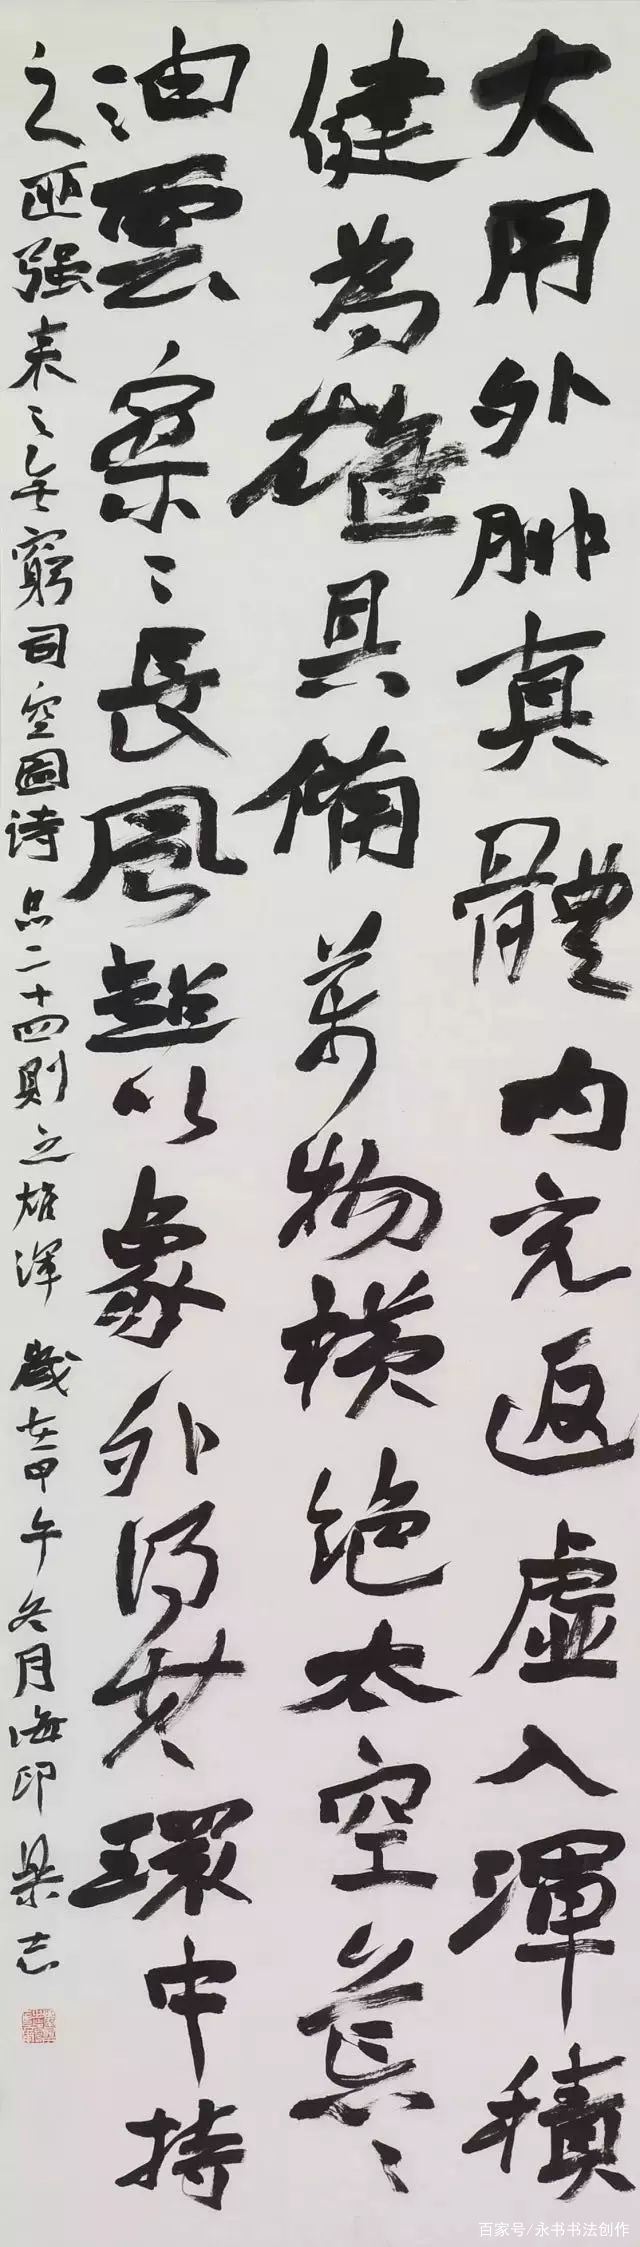 大用外腓真體内充返虚入渾積
健為雄具備萬物横絶太空荒〻
油雲寥〻長風超以象外得其環中持
之匪强来之無窮司空圖詩品二十四則之雄渾 歲在甲午冬月海印志
百家号/永书书法创作